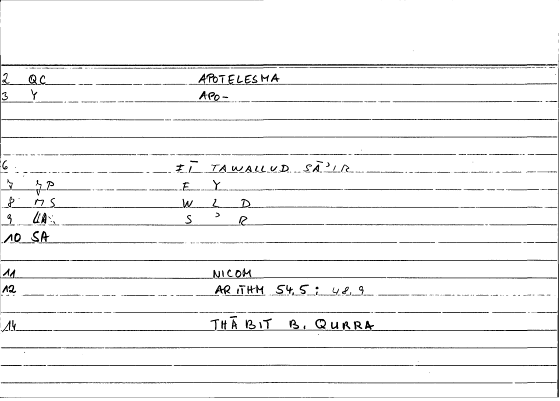 2 QC APOTELESMA
3 Y APO-
6 FĪ TAWALLUD SĀʾIR
7 JP F Y
8 MS W L D
9 S ʾ R
10 SA
11 NICOM
12 ARITHM 54,5 ; 48,9
14 THĀBIT B. QURRA